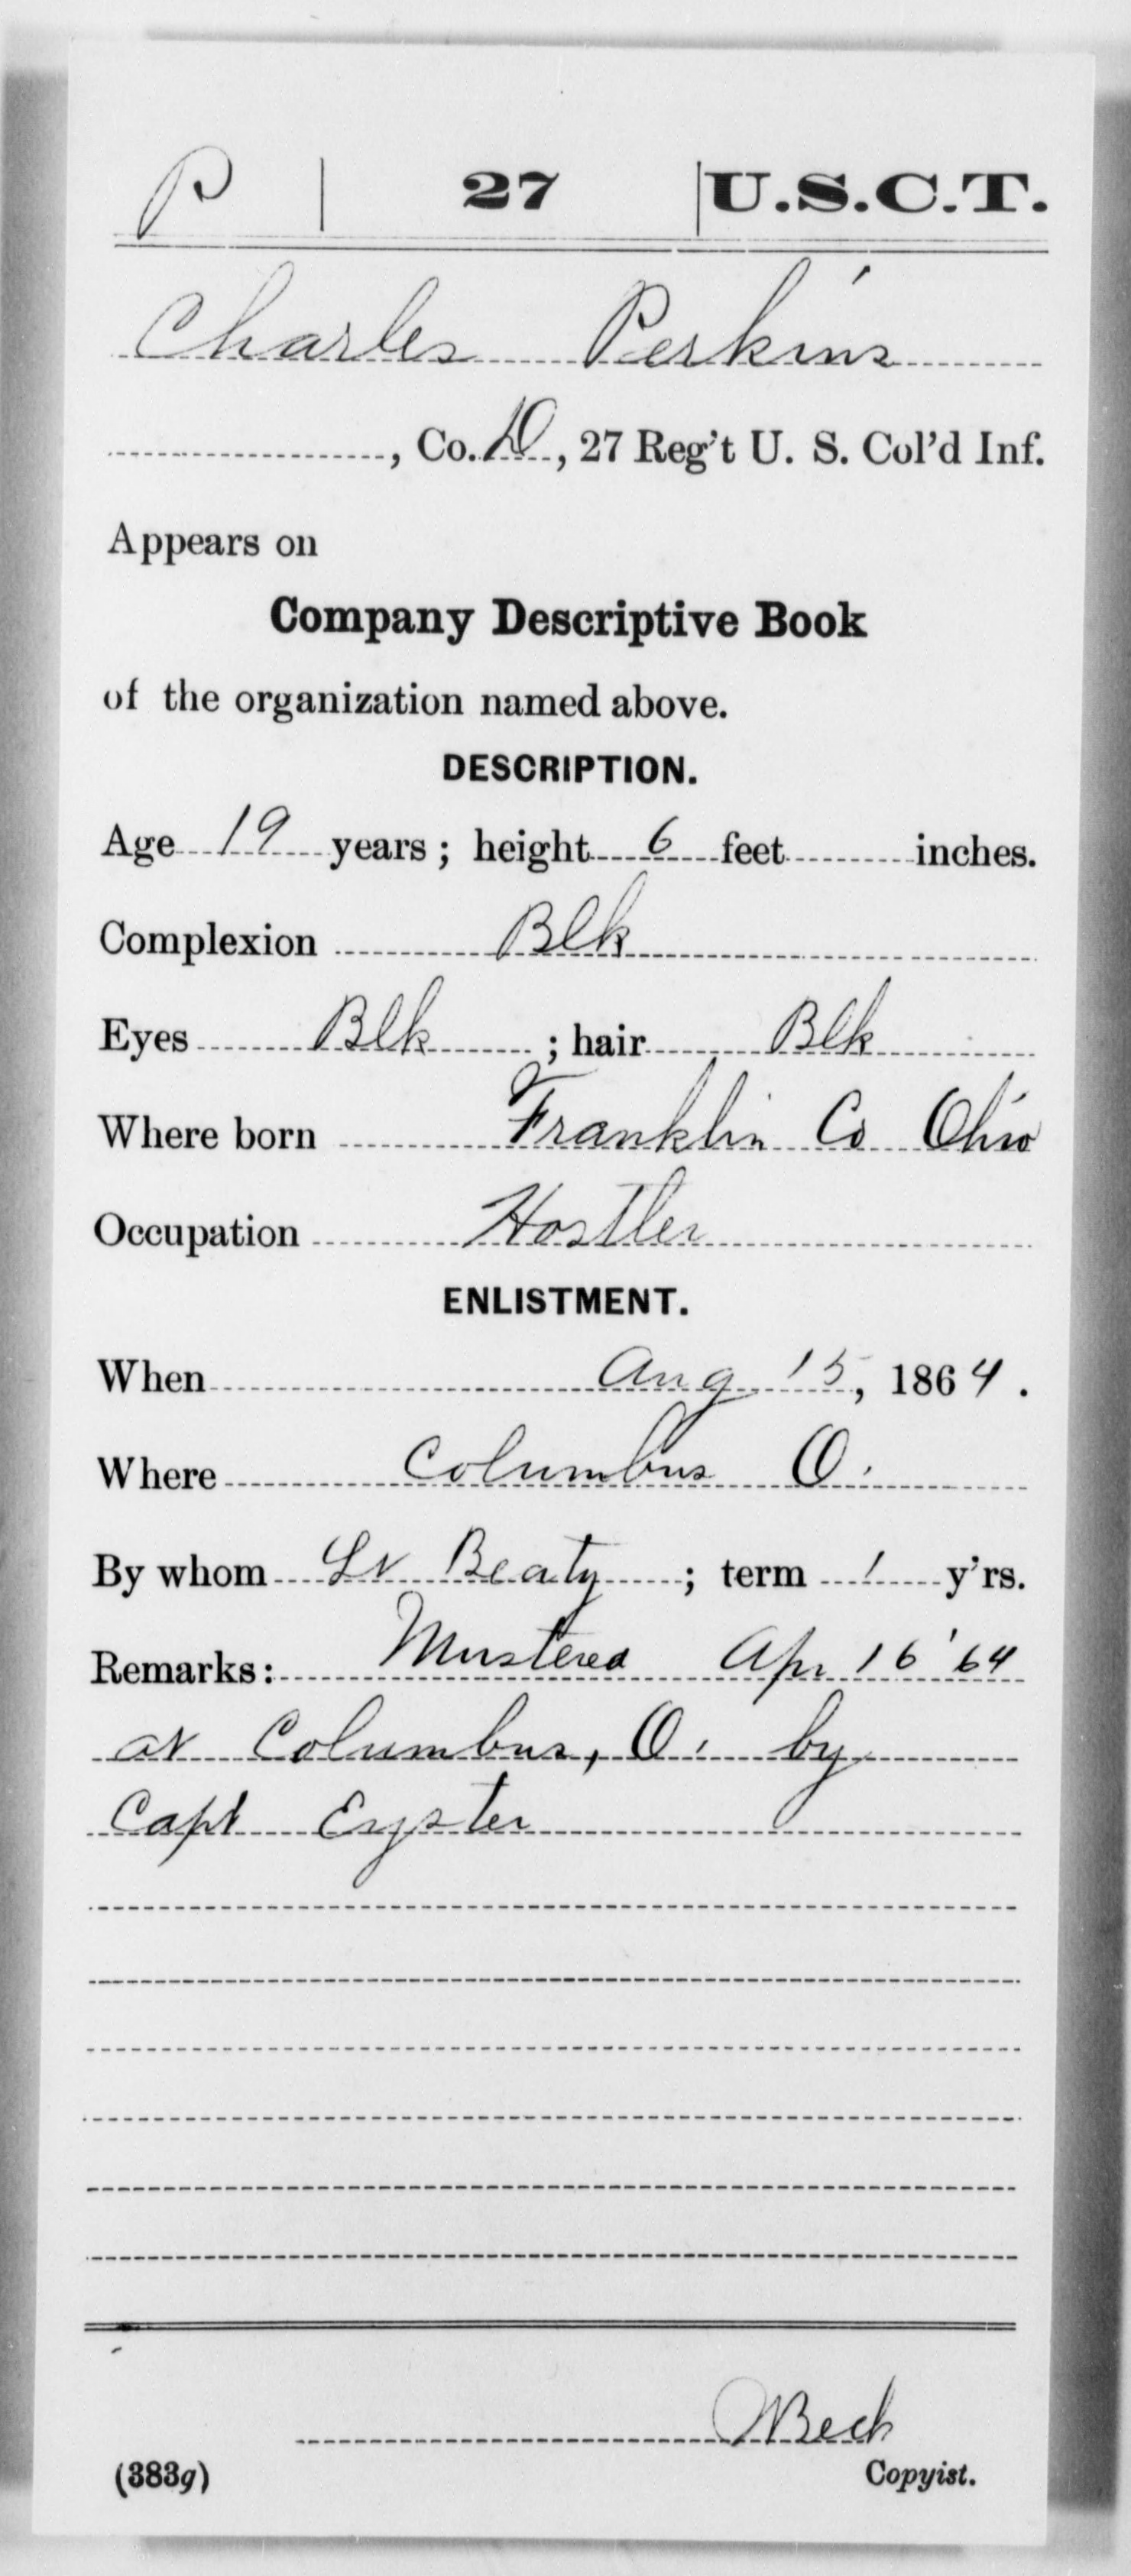 P 27 U.S.C.T.
Charles Perkins
, Co. D, 27 Reg't U. S. Col'd Inf.
Appears on
Company Descriptive Book
of the organization named above.
DESCRIPTION.
Age 19 years; height 6 feet inches.
Complexion Blk
Eyes Blk; hair Blk
Where born Franklin Co Ohio
Occupation Hostler
ENLISTMENT.
When Aug 15, 1864.
Where Columbus O.
By whom Lt Beaty; term 1 y'rs.
Remarks: Mustered Apr 16 '64
at Columbus, O. by
Capt Eyster
Beck
(383g) Copyist.